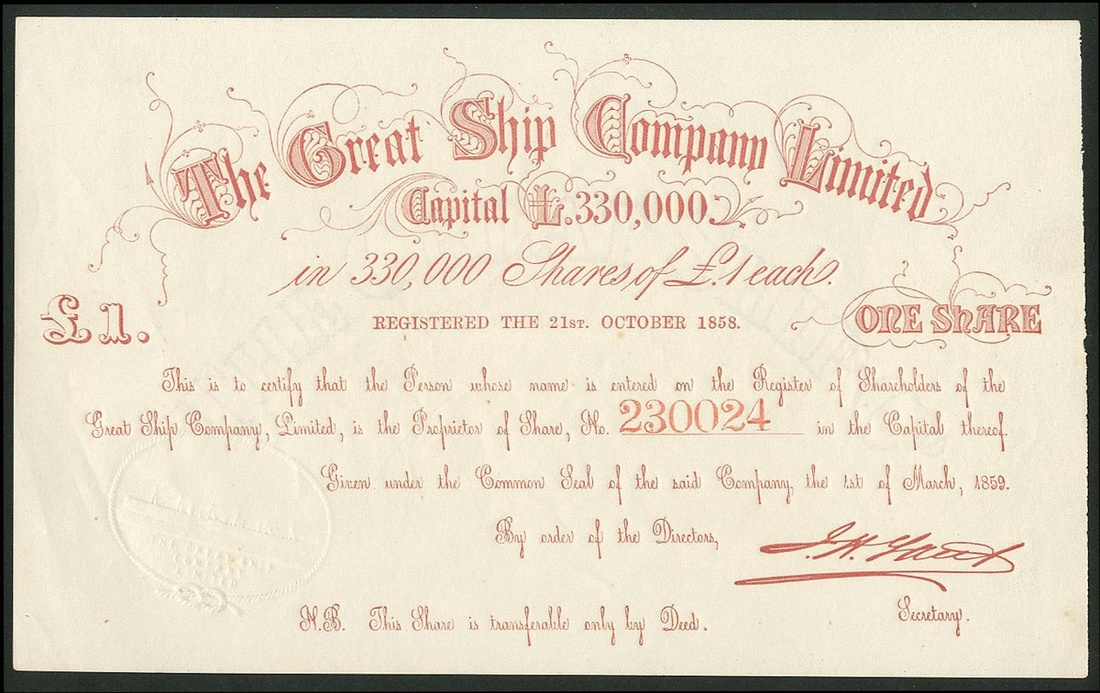 The Great Ship Company Limited
Capital £.330,000.
in 330,000 Shares of £.1 each.
REGISTERED THE 21ST. OCTOBER 1858.
£1.
ONE SHARE
This is to certify that the Person whose name is entered on the Register of Shareholders of the
Great Ship Company, Limited, is the Proprietor of Share, No. 230024 in the Capital thereof.
Given under the Common Seal of the said Company, the 1st of March, 1859.
By order of the Directors,
Secretary.
N.B. This Share is transferable only by Deed.